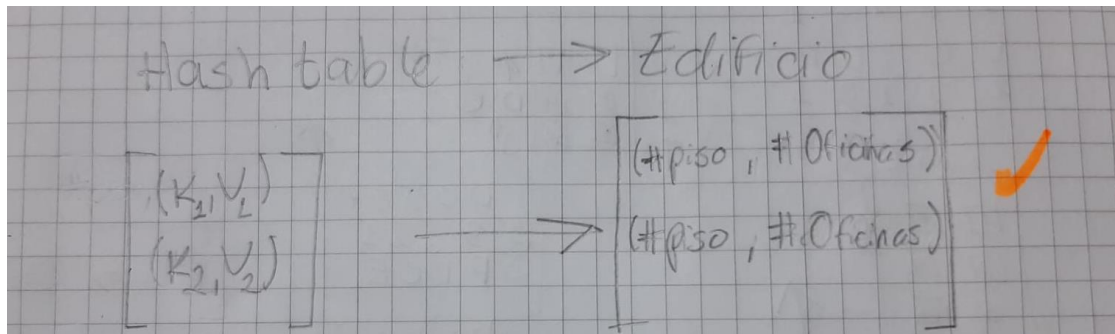 Hash table → Edificio
(K1, V1) → (#piso, #Oficinas)
(K2, V2) (#piso, #Oficinas)